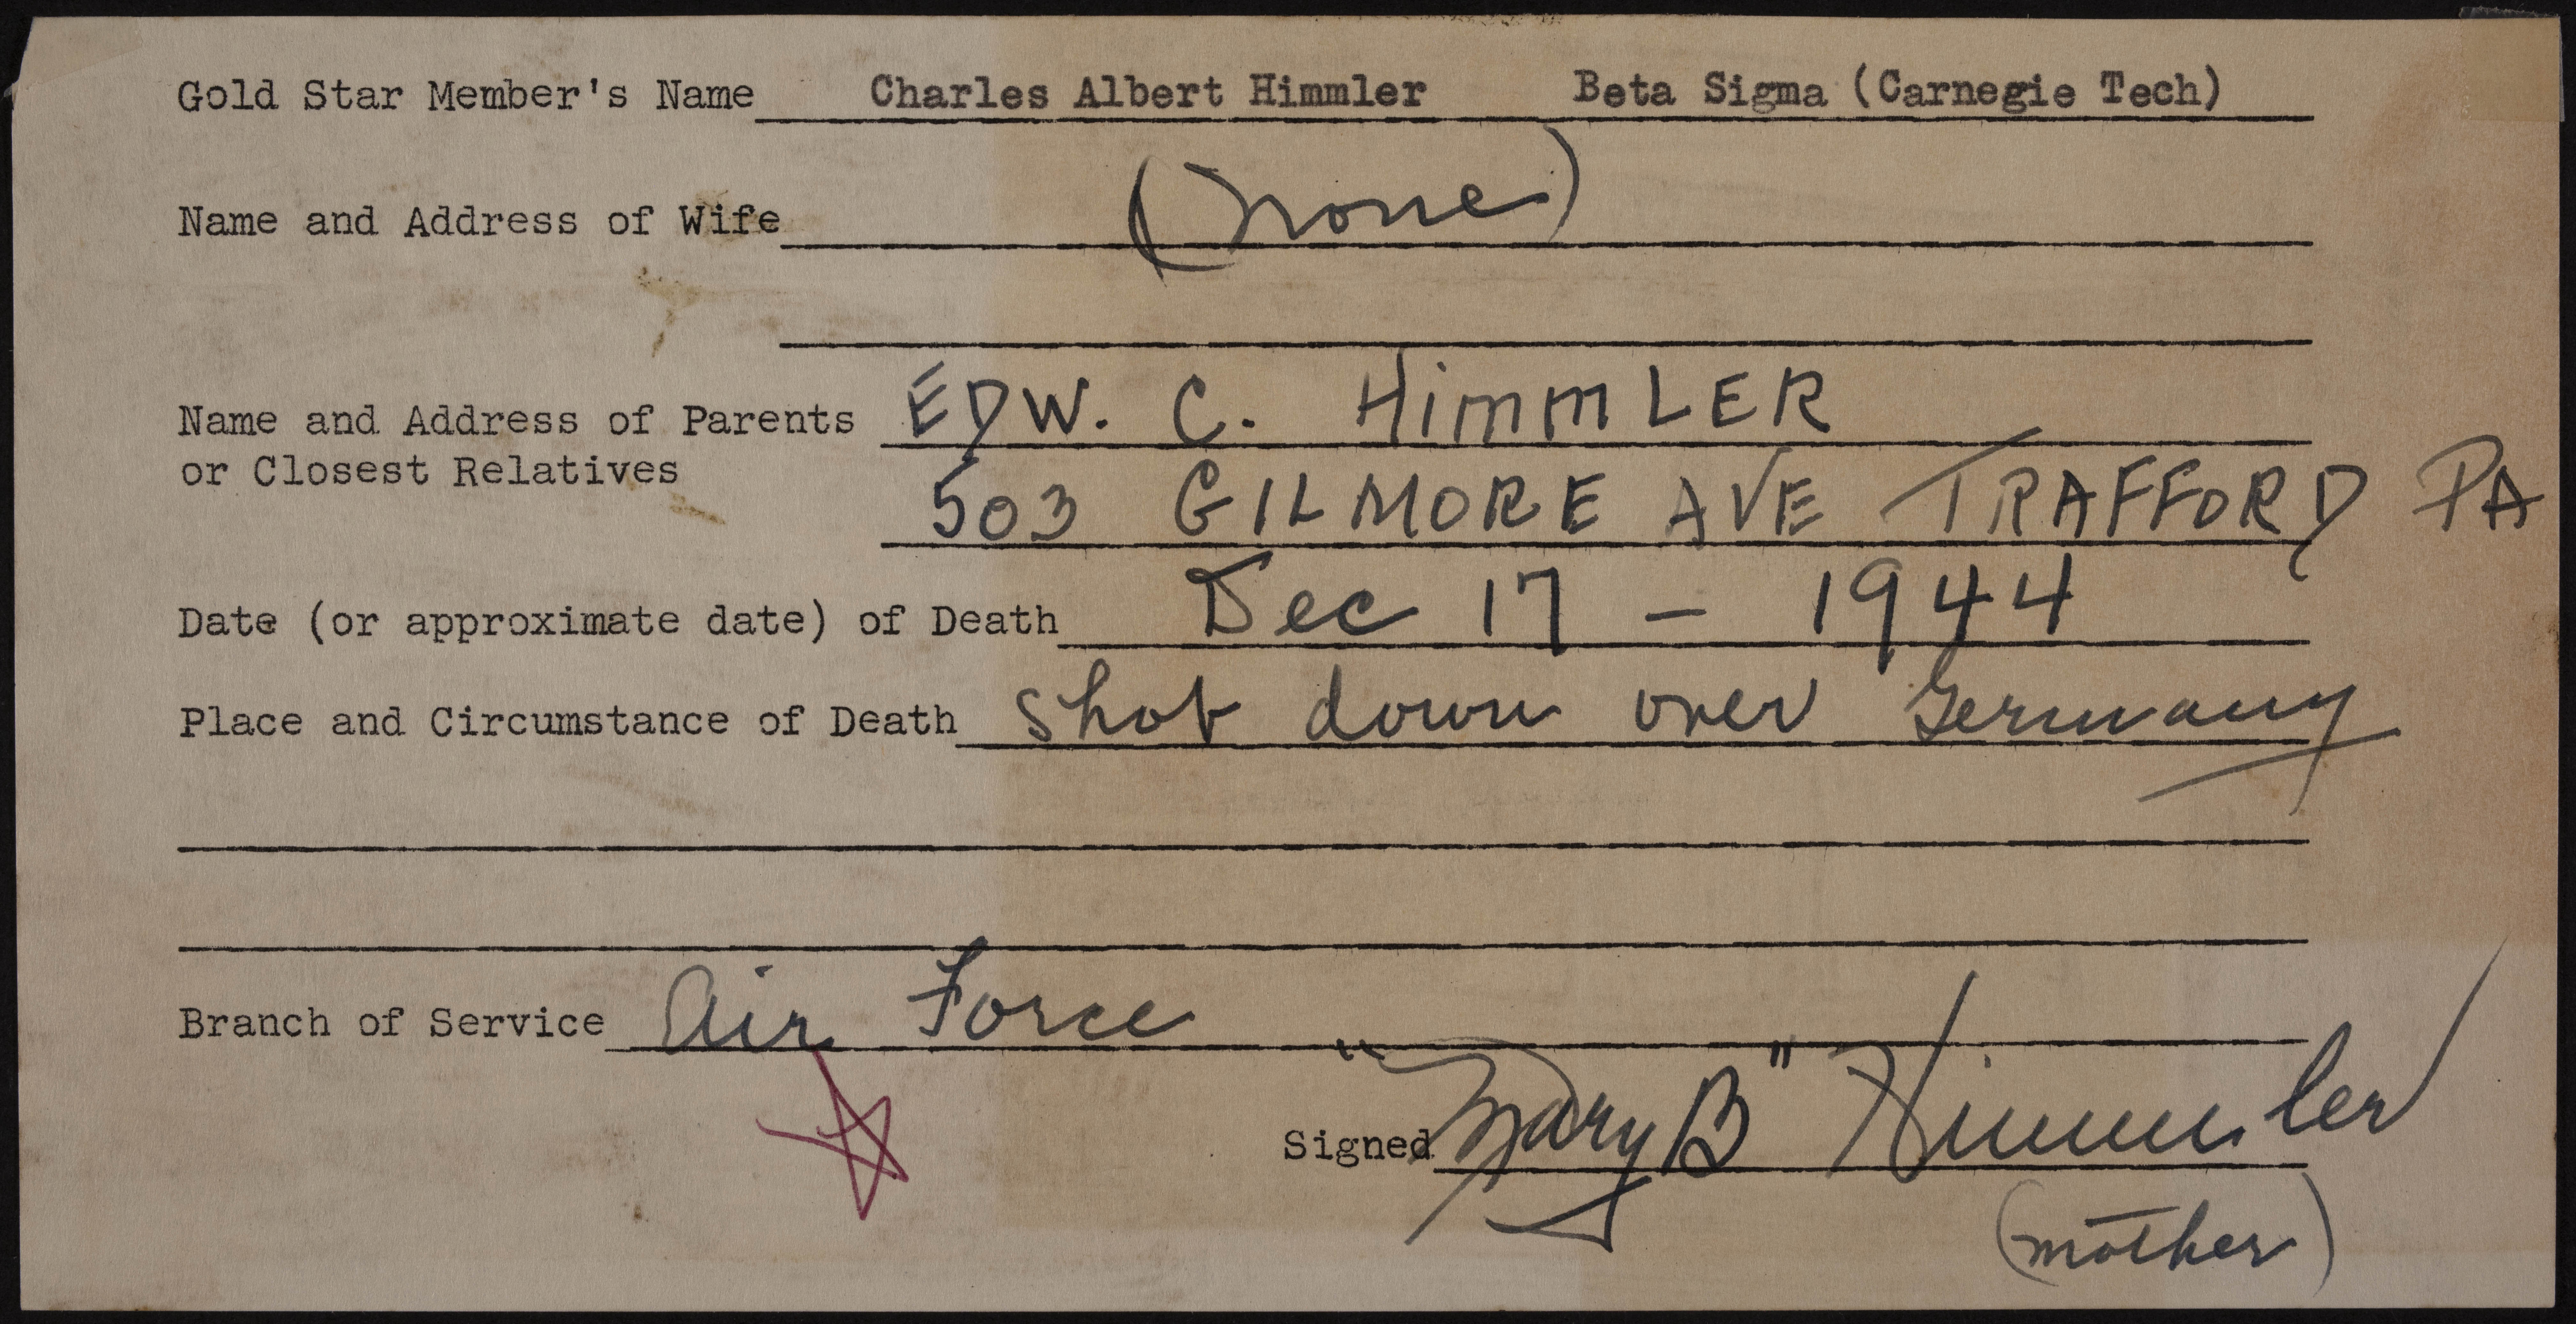 Gold Star Member's Name Charles Albert Himmler Beta Sigma (Carnegie Tech)
Name and Address of Wife (none)
Name and Address of Parents EDW. C. HimmLER
or Closest Relatives
503 GILMORE AVE TRAFFORD PA
Date (or approximate date) of Death Dec 17 - 1944
Place and Circumstance of Death shot down over Germany
Branch of Service Air Force
Signed "Mary B" Himmler
(mother)